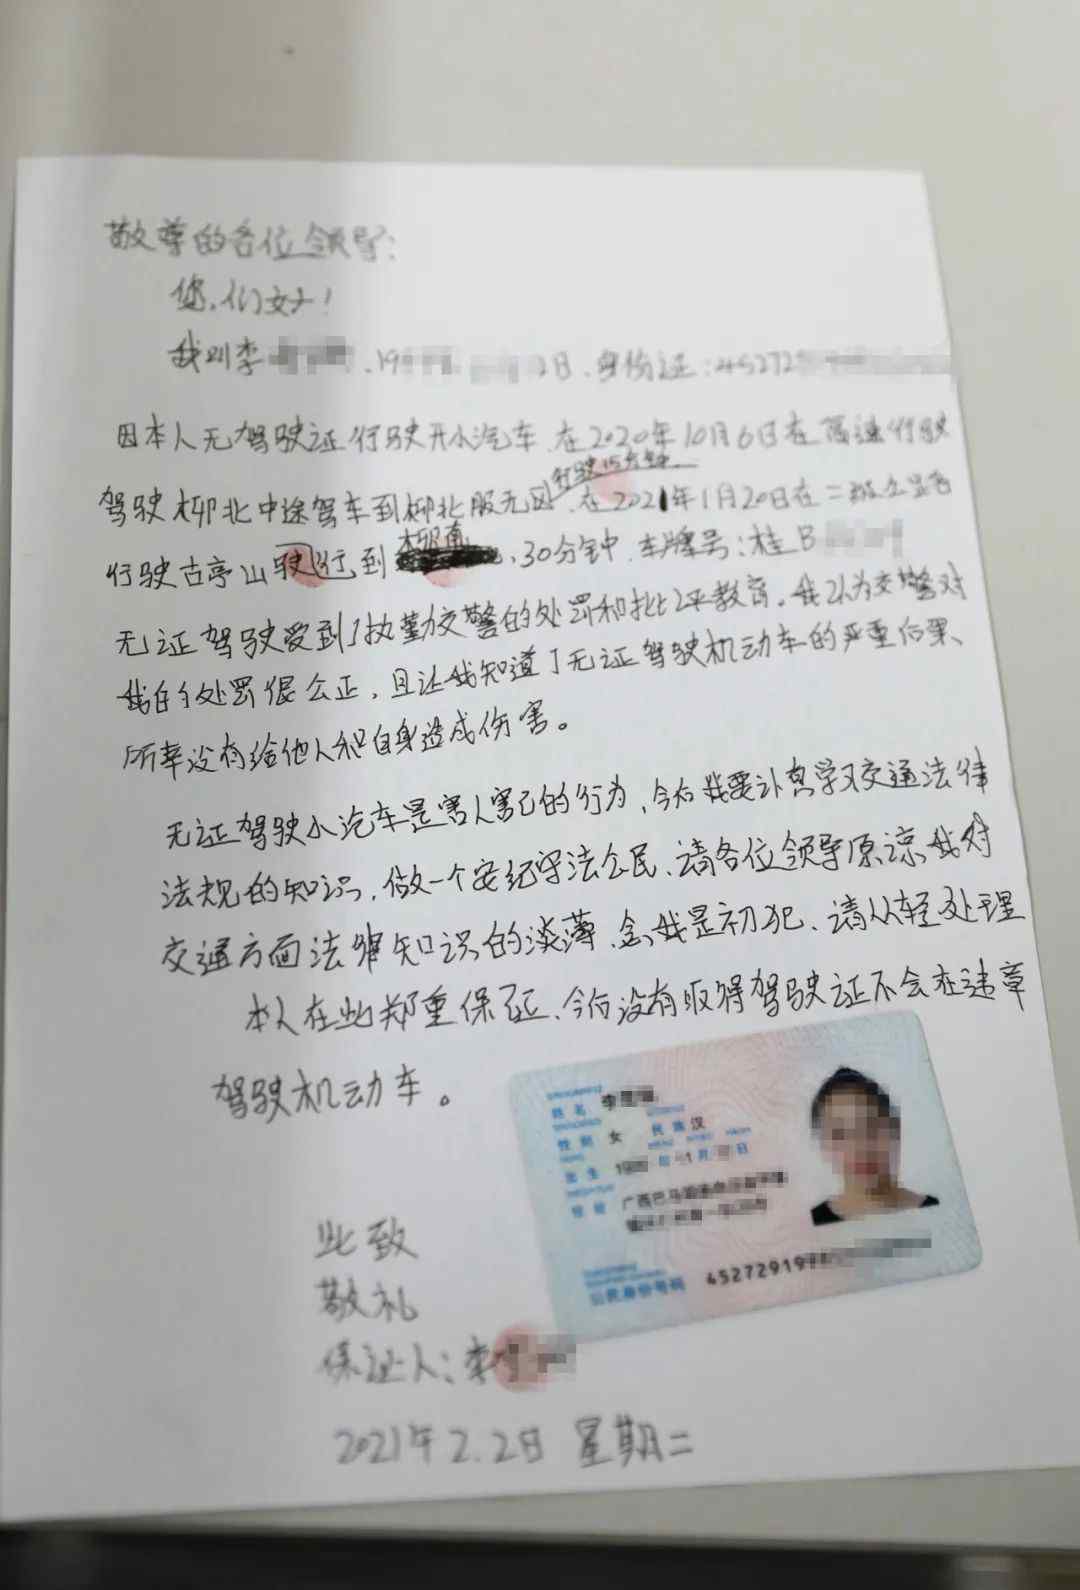 敬尊的各位领导:
您们好!
我叫李 19 2日.身份证:45272
因本人无驾驶证行驶开小汽车.在2020年10月6日在高速行驶
行驶15分钟
驾驶柳北中途驾车到柳北服无区.在2021年1月20日在二级公路
柳南
行驶古亭山驶行到 、30分钟.车牌号:桂B
无证驾驶受到了执勤交警的处罚和批评教育。我认为交警对
我的处罚很公正,且让我知道了无证驾驶机动车的严重后果、
所幸没有给他人和自身造成伤害。
无证驾驶小汽车是害人害己的行为,今后我要认真学习交通法律
法规的知识,做一个安纪守法公民、请各位领导原谅我对
交通方面法律知识的淡薄.念我是初犯、请从轻处理
本人在此郑重保证、今后没有取得驾驶证不会在违章
驾驶机动车。
姓名 李
性别 女 民族 汉
出生 19 1月 日
住址 广西巴马
公民身份号码 45272919
此致
敬礼
保证人:李
2021年2.2日 星期二